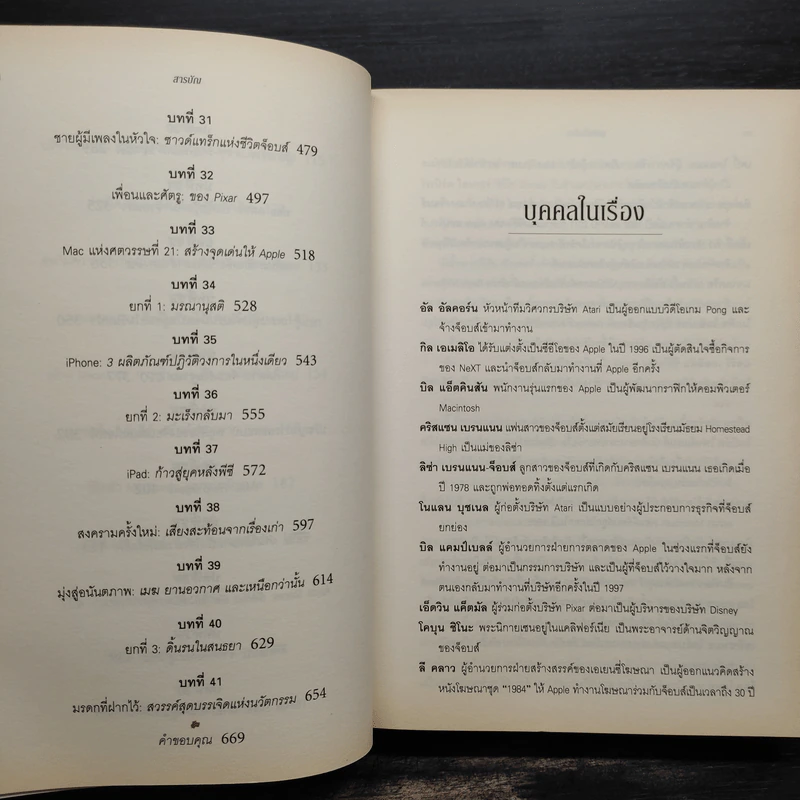 สารบัญ
บทที่ 31
ชายผู้มีเพลงในหัวใจ: ซาวด์แทร็กแห่งชีวิตจ็อบส์ 479
บทที่ 32
เพื่อนและศัตรู: ของ Pixar 497
บทที่ 33
Mac แห่งศตวรรษที่ 21: สร้างจุดเด่นให้ Apple 518
บทที่ 34
ยกที่ 1: มรณานุสติ 528
บทที่ 35
iPhone: 3 ผลิตภัณฑ์ปฏิวัติวงการในหนึ่งเดียว 543
บทที่ 36
ยกที่ 2: มะเร็งกลับมา 555
บทที่ 37
iPad: ก้าวสู่ยุคหลังพีซี 572
บทที่ 38
สงครามครั้งใหม่: เสียงสะท้อนจากเรื่องเก่า 597
บทที่ 39
มุ่งสู่อนันตภาพ: เมฆ ยานอวกาศ และเหนือกว่านั้น 614
บทที่ 40
ยกที่ 3: ดิ้นรนในสนธยา 629
บทที่ 41
มรดกที่ฝากไว้: สวรรค์สุดบรรเจิดแห่งนวัตกรรม 654
คำขอบคุณ 669
บุคคลในเรื่อง
อัล อัลคอร์น หัวหน้าทีมวิศวกรบริษัท Atari เป็นผู้ออกแบบวิดีโอเกม Pong และ
จ้างจ็อบส์เข้ามาทำงาน
กิล เอเมลิโอ ได้รับแต่งตั้งเป็นซีอีโอของ Apple ในปี 1996 เป็นผู้ตัดสินใจซื้อกิจการ
ของ NeXT และนำจ็อบส์กลับมาทำงานที่ Apple อีกครั้ง
บิล แอ็ตคินสัน พนักงานรุ่นแรกของ Apple เป็นผู้พัฒนากราฟิกให้คอมพิวเตอร์
Macintosh
คริสแซน เบรนแนน แฟนสาวของจ็อบส์ตั้งแต่สมัยเรียนอยู่โรงเรียนมัธยม Homestead
High เป็นแม่ของลิซ่า
ลิซ่า เบรนแนน-จ็อบส์ ลูกสาวของจ็อบส์ที่เกิดกับคริสแซน เบรนแนน เธอเกิดเมื่อ
ปี 1978 และถูกพ่อทอดทิ้งตั้งแต่แรกเกิด
โนแลน บุชเนล ผู้ก่อตั้งบริษัท Atari เป็นแบบอย่างผู้ประกอบการธุรกิจที่จ็อบส์
ยกย่อง
บิล แคมป์เบลล์ ผู้อำนวยการฝ่ายการตลาดของ Apple ในช่วงแรกที่จ็อบส์ยัง
ทำงานอยู่ ต่อมาเป็นกรรมการบริษัท และเป็นผู้ที่จ็อบส์ไว้วางใจมาก หลังจาก
ตนเองกลับมาทำงานที่บริษัทอีกครั้งในปี 1997
เอ็ดวิน แค็ตมัล ผู้ร่วมก่อตั้งบริษัท Pixar ต่อมาเป็นผู้บริหารของบริษัท Disney
โคบุน ชิโนะ พระนิกายเซนอยู่ในแคลิฟอร์เนีย เป็นพระอาจารย์ด้านจิตวิญญาณ
ของจ็อบส์
ลี คลาว ผู้อำนวยการฝ่ายสร้างสรรค์ของเอเยนซี่โฆษณา เป็นผู้ออกแนวคิดสร้าง
หนังโฆษณาชุด "1984" ให้ Apple ทำงานโฆษณาร่วมกับจ็อบส์เป็นเวลาถึง 30 ปี